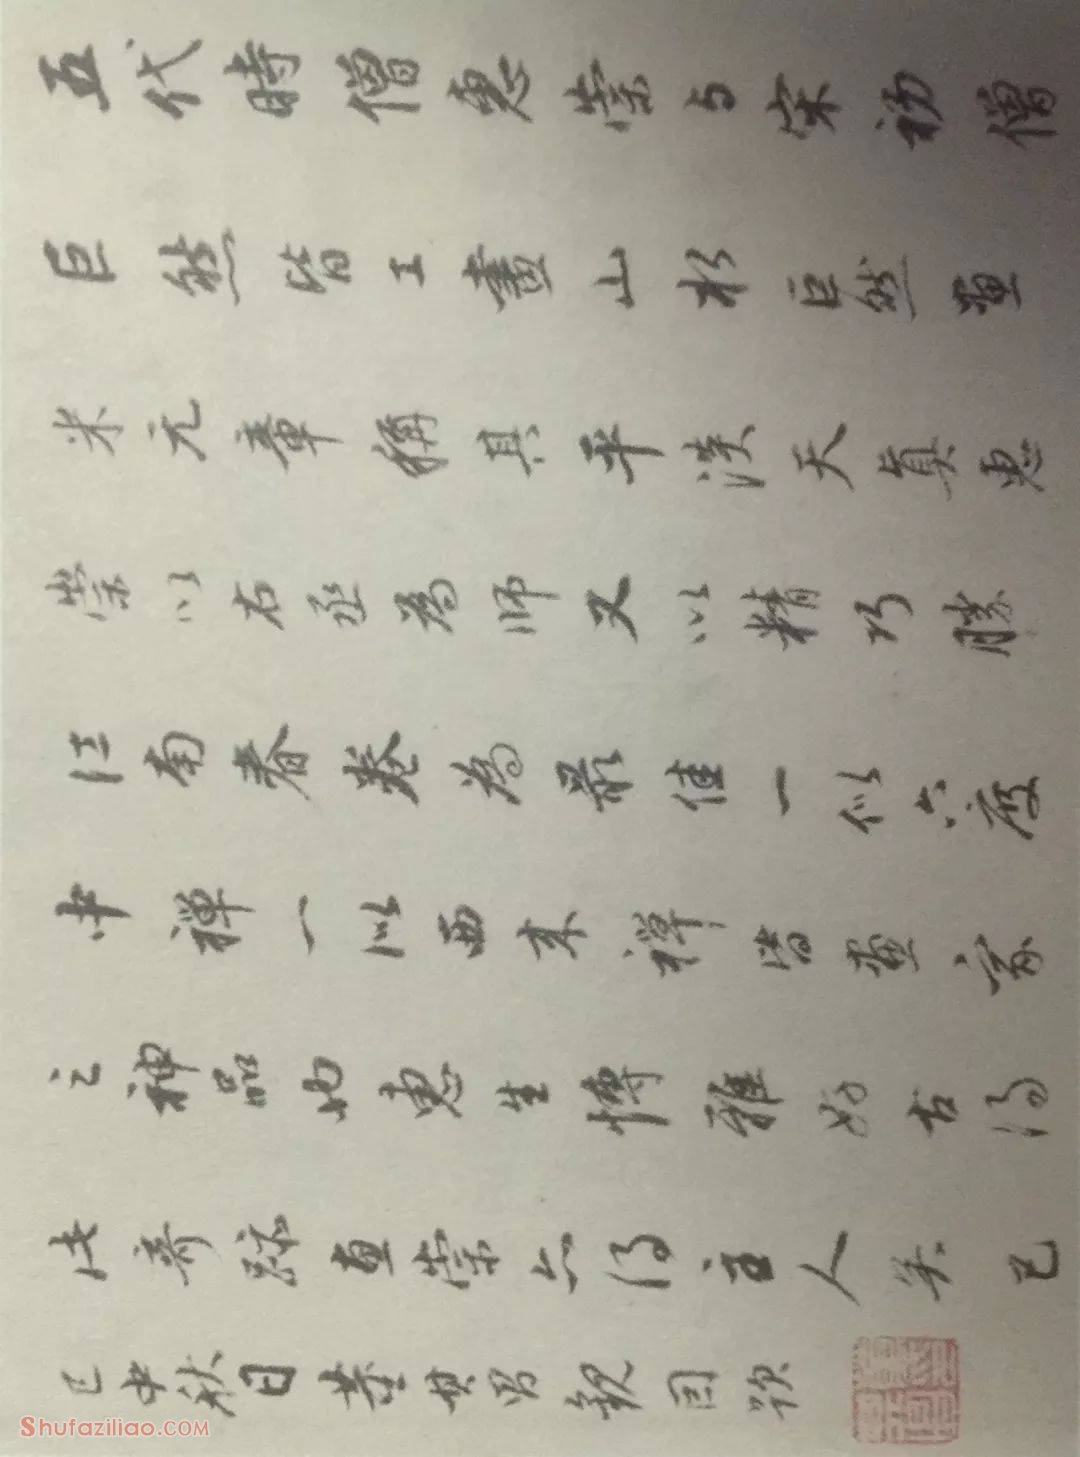 五代時僧惠崇与宋初僧
巨然皆工畫山水巨然畫
米元章稱其平淡天真惠
崇以右丞為師又以精巧勝
江南春卷為最佳一似六度
中禪一似西來禪皆畫家
之神品也惠生博雅好古得
此奇蹟惠崇亦得主人矣己
巳中秋日董其昌觀因題
Shufaziliao.COM